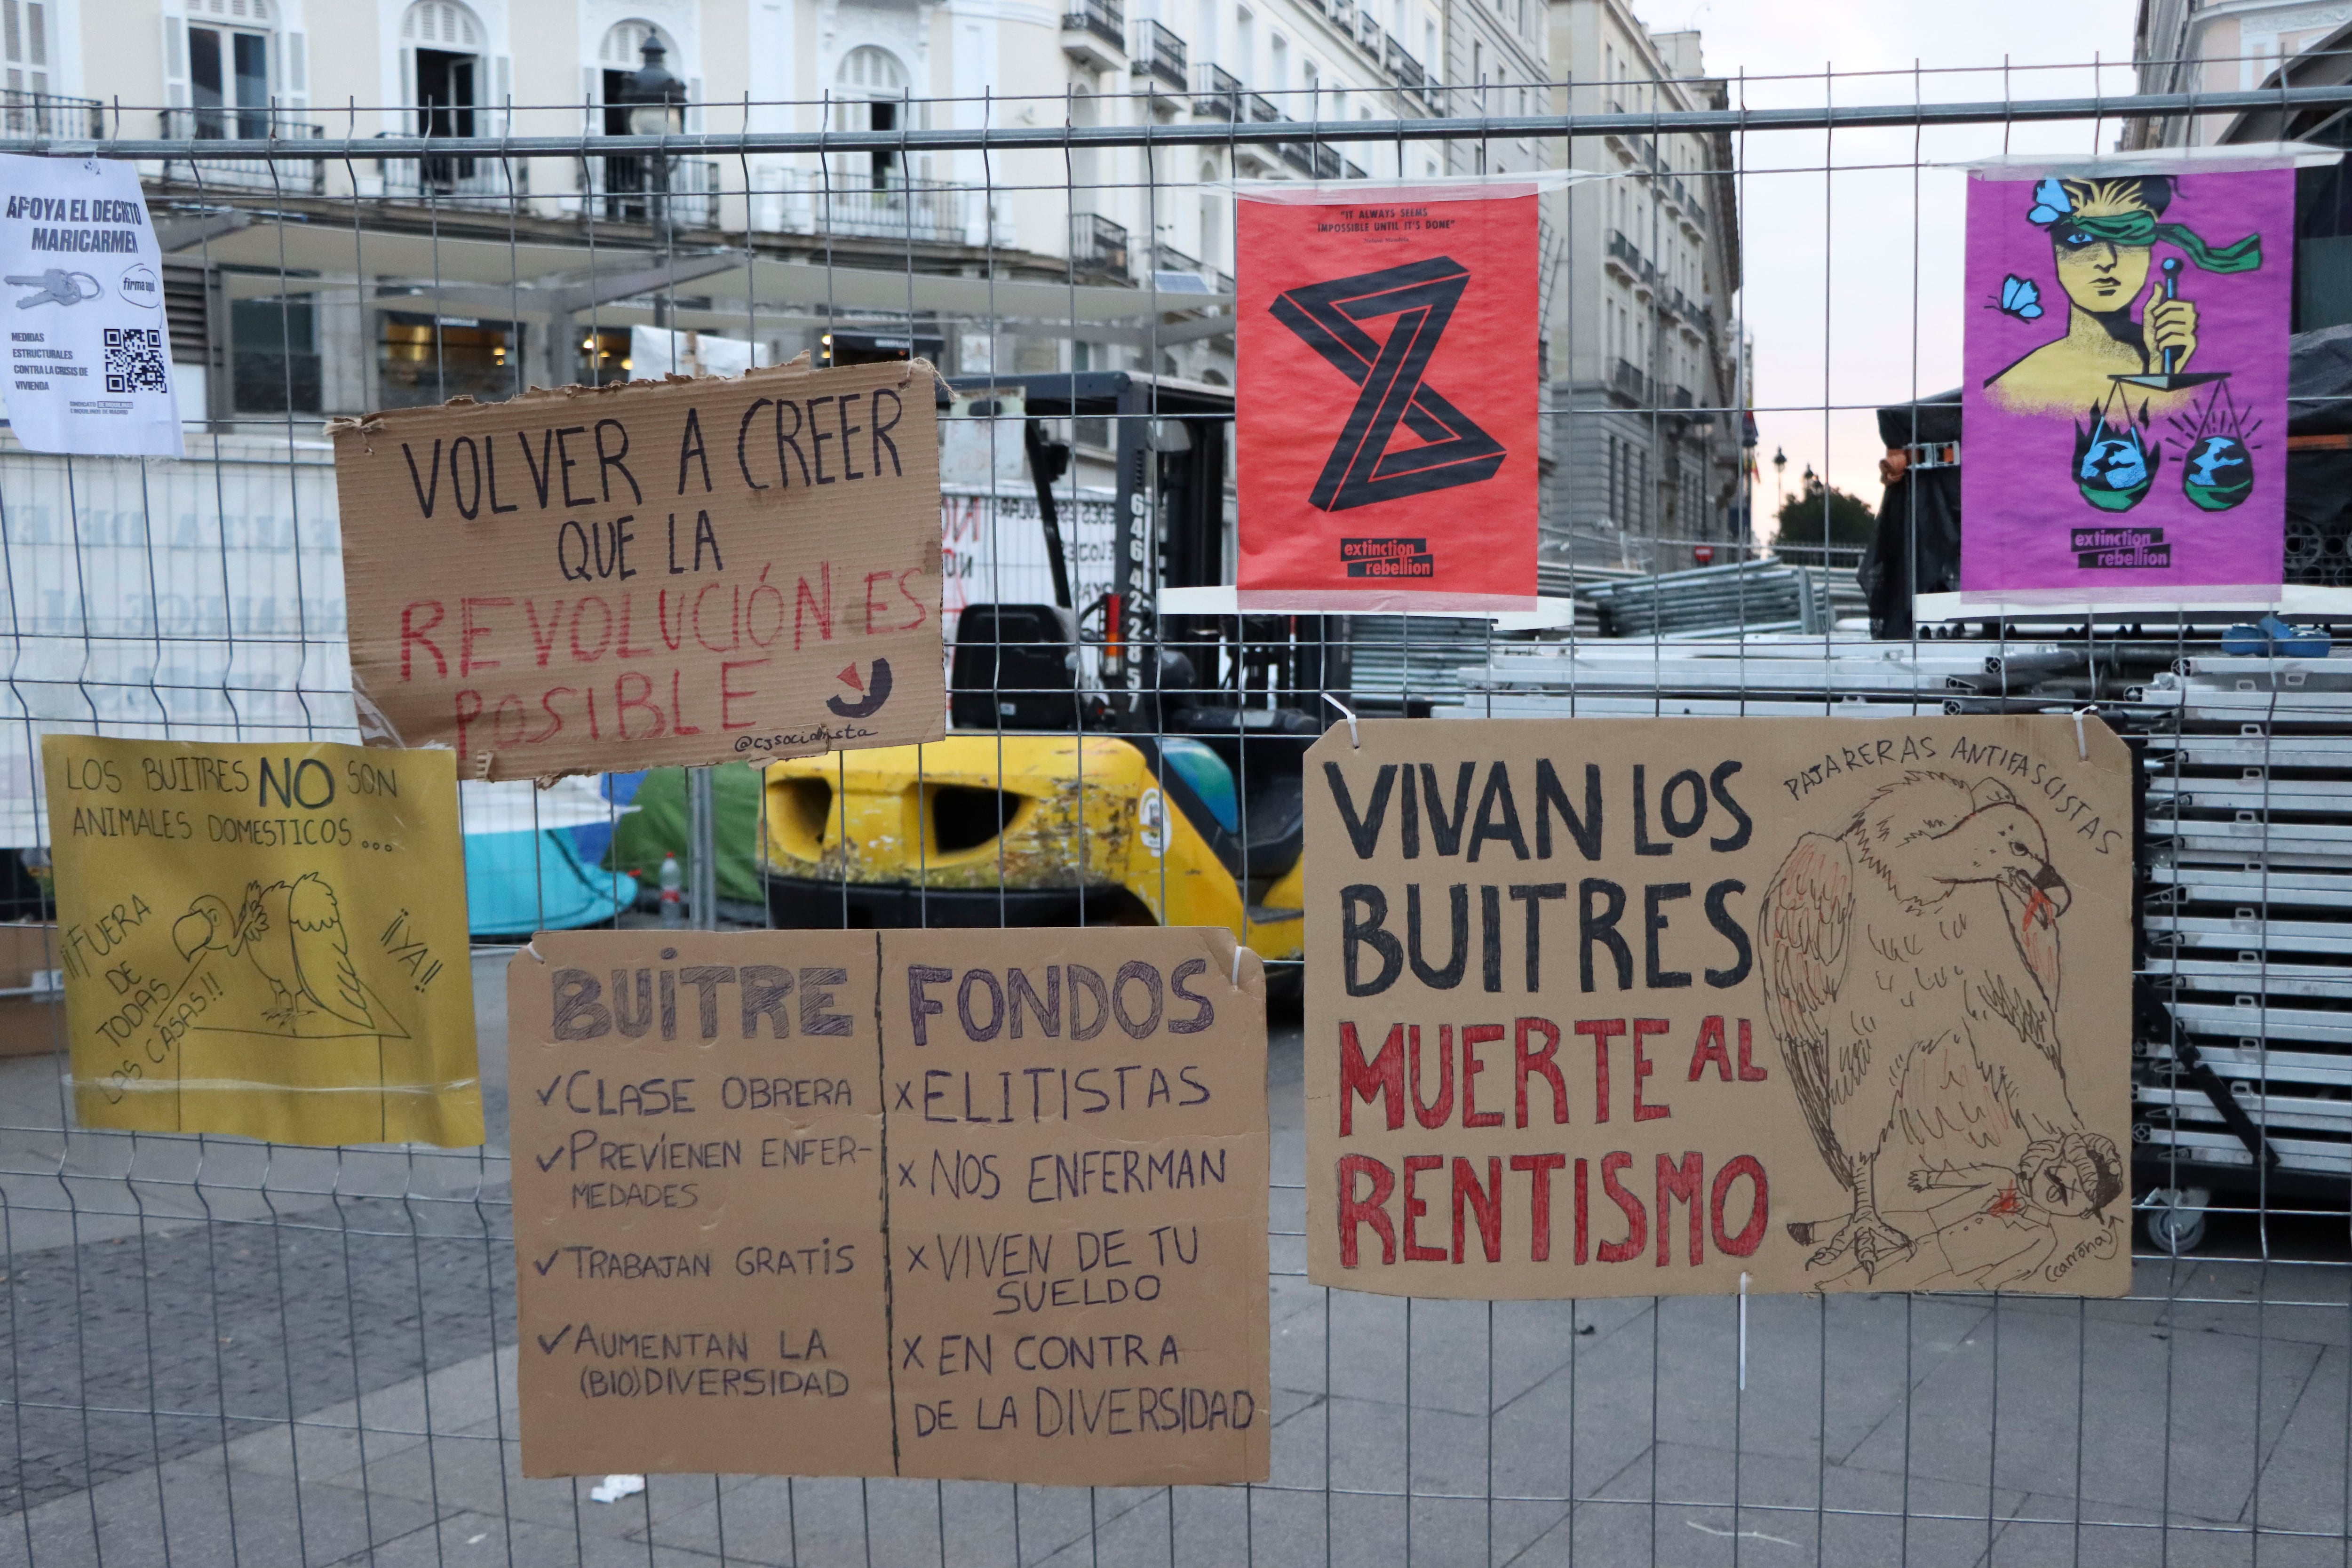 APOYA EL DECRETO
MARICARMEN
firma aquí
MEDIDAS
ESTRUCTURALES
CONTRA LA CRISIS DE
VIVIENDA
SINDICATO DE INQUILINAS
E INQUILINOS DE MADRID
VOLVER A CREER
QUE LA
REVOLUCIÓN ES
POSIBLE
@cjsocialista
"IT ALWAYS SEEMS
IMPOSSIBLE UNTIL IT'S DONE"
Nelson Mandela
extinction
rebellion
extinction
rebellion
LOS BUITRES NO SON
ANIMALES DOMESTICOS...
¡¡FUERA
DE
TODAS
LAS CASAS!!
¡¡YA!!
BUiTRE
✓CLASE OBRERA
✓PREVIENEN ENFER-
MEDADES
✓TRABAJAN GRATiS
✓AUMENTAN LA
(BIO)DIVERSIDAD
FONDOS
xELITISTAS
x NOS ENFERMAN
x VIVEN DE TU
SUELDO
X EN CONTRA
DE LA DIVERSIDAD
VIVAN LOS
BUITRES
MUERTE AL
RENTISMO
PAJARERAS ANTIFASCISTAS
(carroña)
64642857